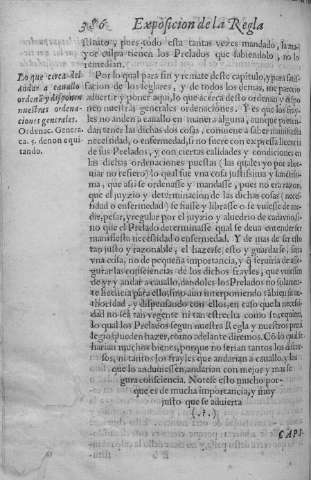 386 Exposicion de la Regla
stituto, pues todo esta tantas vezes mandado, sa ma-
yor culpa tienen los Prelados que sabiendolo, no lo
remedian.
Lo que cerca del
Andar a cauallo
ordenā y disponen
nuestras ordena-
ciones generales.
Ordenac. Genera.
ca. 5. de non equi
tando.
Por lo qual para fin y remate deste capitulo, y para satis-
facion de los seglares, y de todos los demas, me parecio
aduertir y poner aqui, lo que acerca deste ordenan y dispo
nen nuestras generales ordenaciones. Y es que los fray-
les no anden a cauallo en manera alguna, aunque preten-
dan tener las dichas dos cosas, conuiene a saber manifiesta
necessidad, o enfermedad, si no fuere con expressa licencia
de sus Perlados, y con ciertas calidades y condiciones en
las dichas ordenaciones puestas (las quales yo por abre-
uiar no refiero) lo qual fue vna cosa justissima y sanctissi-
ma, que assi se ordenasse y mandasse, pues no era razon,
que el juyzio y determinacion de las dichas cosas (necessi-
tidad o enfermedad) se fiasse y librasse o se vuiesse de me-
dir, pesar, y regular por el juyzio y aluedrio de cada vno, si-
no que el Prelado determinasse qual se deua entender ser
manifiesta necessidad o enfermedad. Y de mas de ser esto
tan justo y razonable, el hazerse esto y guardarse, sin
vna cosa, no de pequeña importancia, y q̄ seruiria de asse-
gurar las consciencias de los dichos frayles, que vuiessen
de yr y andar a cauallo, dandoles los Prelados no solamen-
te licencia para ello, sino aun interponiendo tābien su au-
thoridad, y dispensando con ellos, en caso que la necessi-
dad no sea tan vegente ni tan estrecha como se requiere,
lo qual los Prelados segun nuestra Regla y nuestros priui
legios pueden hazer, como adelante diremos. Cō lo qual se
harian muchos bienes, porque no serian tantos los dicho-
sos, ni tantos los frayles que andarian a cauallo, y los
que lo anduuiessen, andarian con mejor y mas se
gura consciencia. Notese esto mucho por-
que es de mucha importancia, y muy
justo que se aduierta
(.?.)
CAPI-